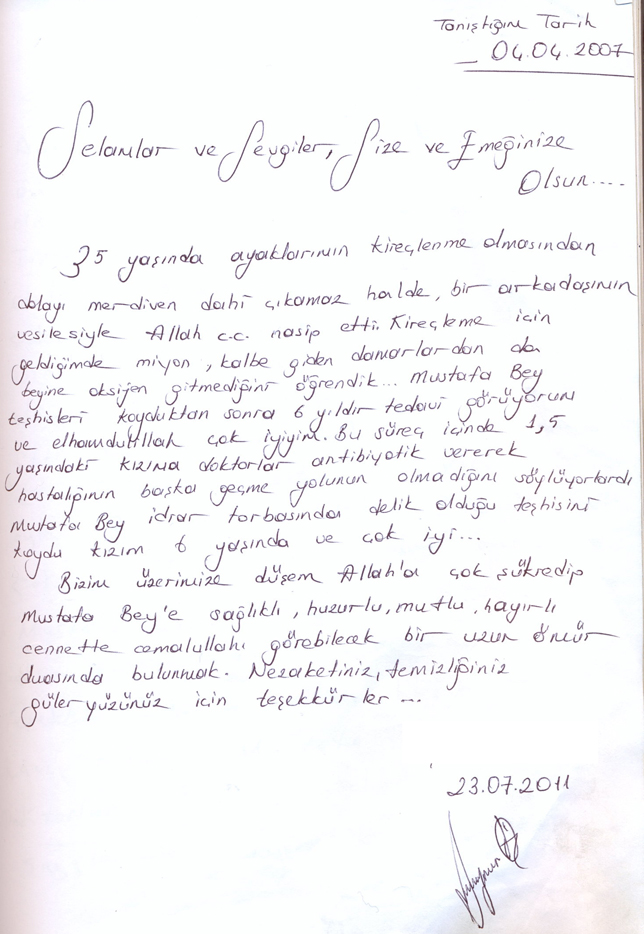 Tanıştığım Tarih
04.04.2007
Selamlar ve Sevgiler, Size ve Emeğinize
Olsun....
35 yaşında ayaklarının kireçlenme olmasından
dolayı merdiven dahi çıkamaz halde, bir arkadaşının
vesilesiyle Allah c.c. nasip etti. Kireçleme için
geldiğimde miyon, kalbe giden damarlardan da
beyine oksijen gitmediğini öğrendik... Mustafa Bey
teşhisleri koyduktan sonra 6 yıldır tedavi görüyorum
ve elhamdulillah çok iyiyim. Bu süreç içinde 1,5
yaşındaki kızıma doktorlar antibiyotik vererek
hastalığının başka geçme yolunun olmadığını söylüyorlardı
Mustafa Bey idrar torbasında delik olduğu teşhisini
koydu kızım 6 yaşında ve çok iyi...
Bizim üzerimize düşem Allah'a çok şükredip
Mustafa Bey'e sağlıklı, huzurlu, mutlu, hayırlı
cennette cemalullahı görebilecek bir uzun ömür
duasında bulunmak. Nezaketiniz, temizliğiniz
güler yüzünüz için teşekkürler ...
23.07.2011